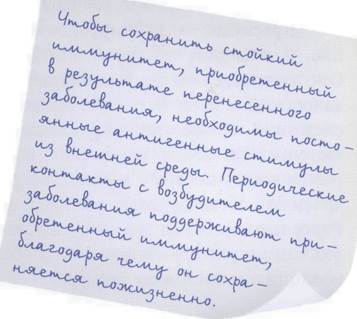 Чтобы сохранить стойкий
иммунитет, приобретенный
в результате перенесенного
заболевания, необходимы посто-
янные антигенные стимулы
из внешней среды. Периодические
контакты с возбудителем
заболевания поддерживают при-
обретенный иммунитет,
благодаря чему он сохра-
няется пожизненно.